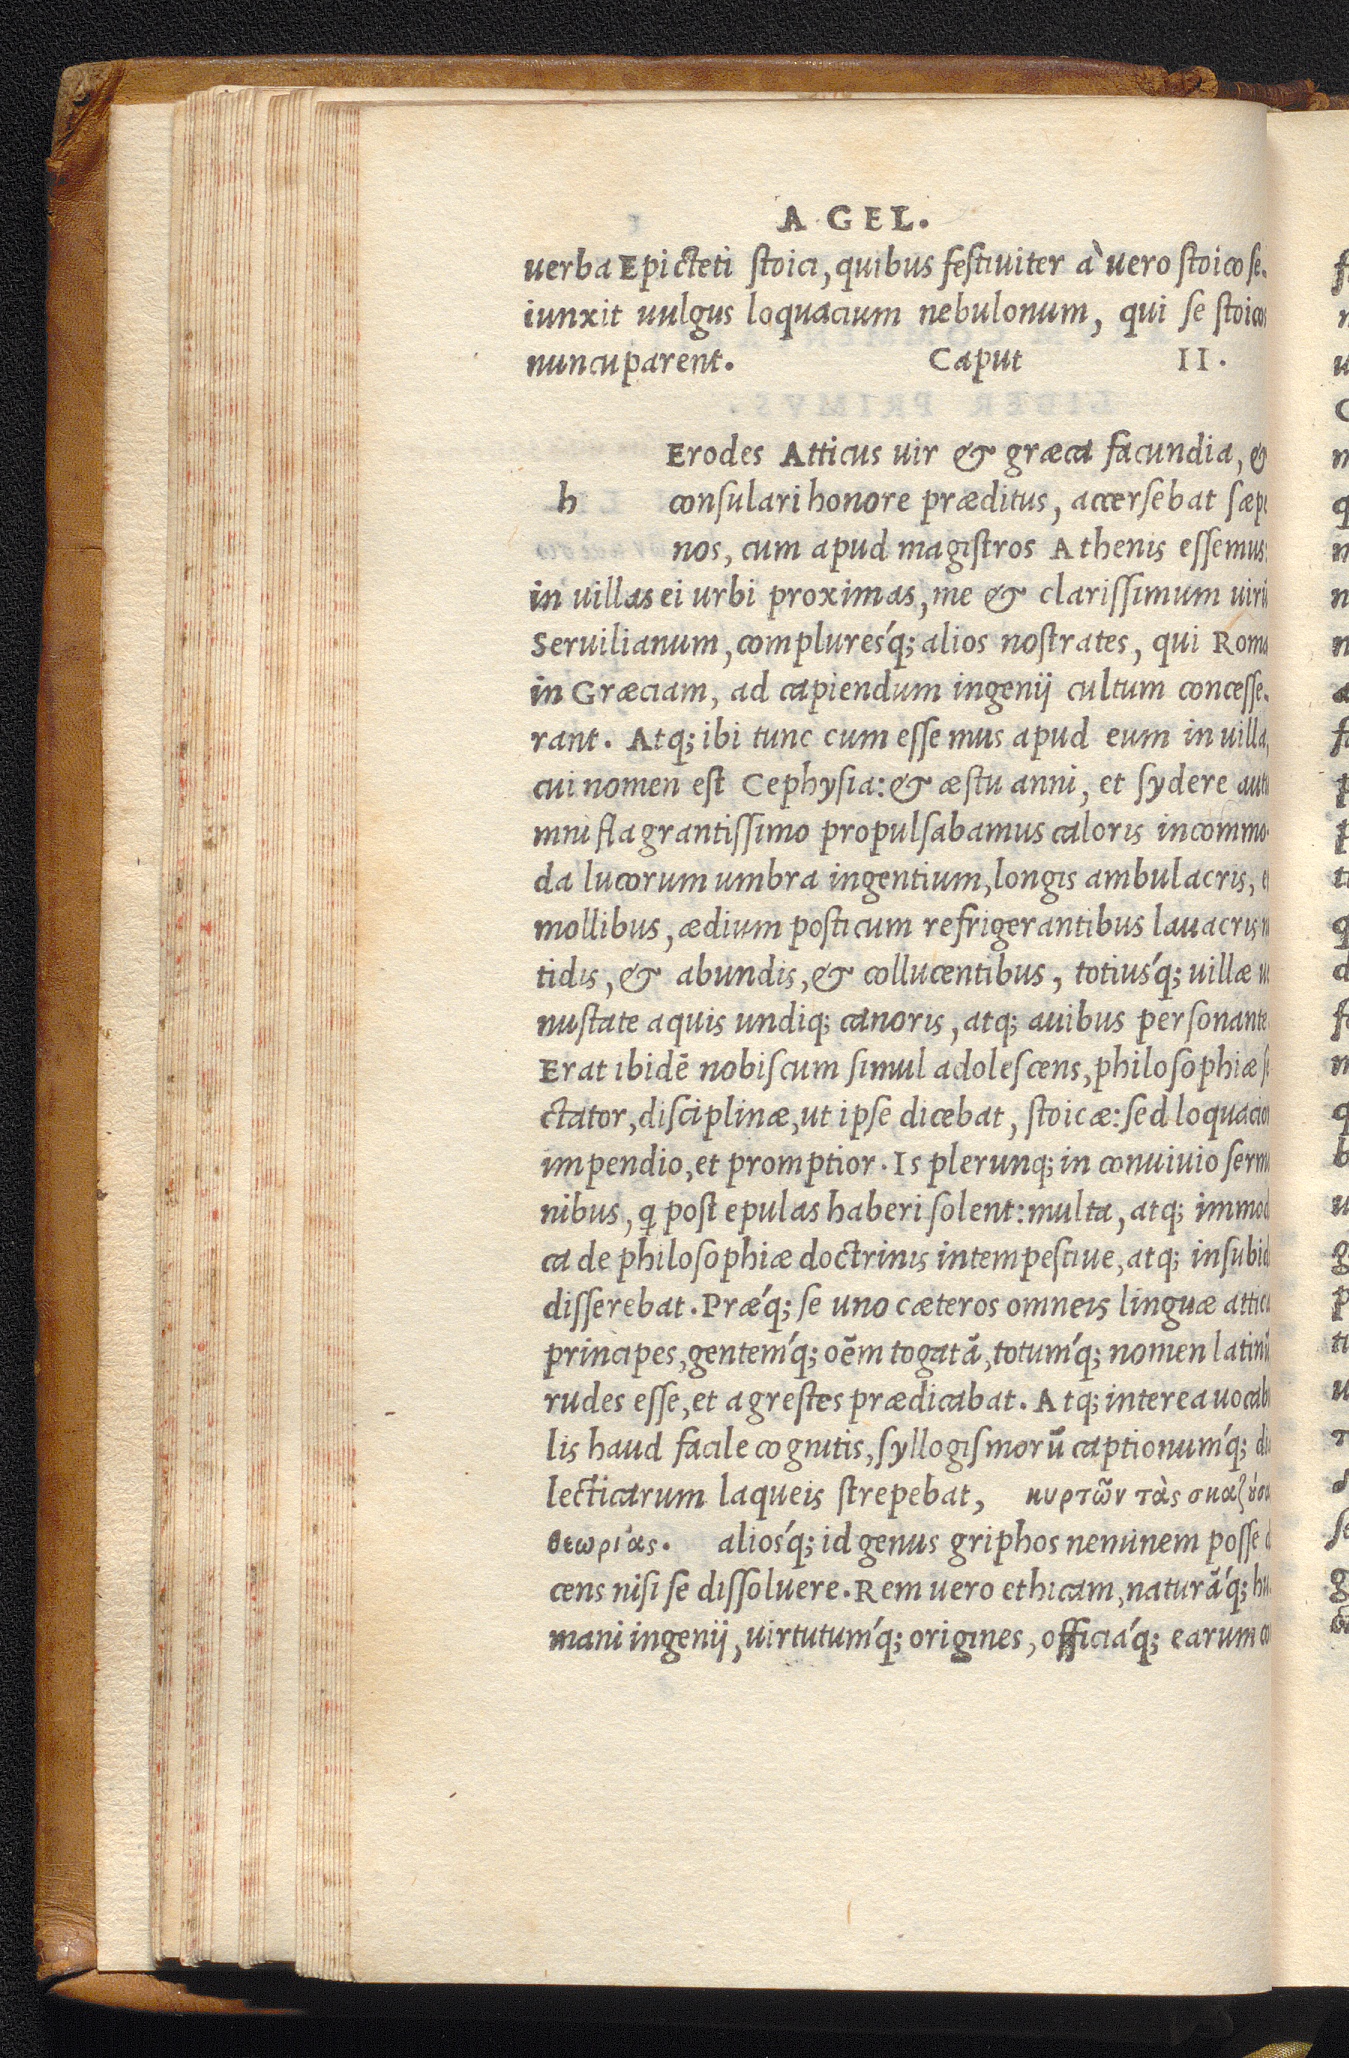 A. GEL.
uerba Epicteti stoici, quibus festiuiter à uero stoico se-
iunxit uulgus loquacium nebulonum, qui se stoicos
nuncuparent. Caput II.
Erodes Atticus uir & græca facundia, &
h consulari honore præditus, accersebat sæpe
nos, cum apud magistros Athenis essemus:
in uillas ei urbi proximas, me & clarissimum uirū
Seruilianum, compluresq́; alios nostrates, qui Roma
in Græciam, ad capiendum ingenij cultum concesse-
rant. Atq; ibi tunc cum essemus apud eum in uilla,
cui nomen est Cephysia: & æstu anni, et sydere autu
mni flagrantissimo propulsabamus caloris incommo-
da lucorum umbra ingentium, longis ambulacris,
mollibus, ædium posticum refrigerantibus lauacris
tidis, & abundis, & collucentibus, totiusq́; uillæ
nustate aquis undiq; canoris, atq; auibus personante
Erat ibidē nobiscum simul adolescens, philosophiæ
ctator, disciplinæ, ut ipse dicebat, stoicæ: sed loquacior
impendio, et promptior. Is plerunq; in conuiuio sermo
nibus, q post epulas haberi solent: multa, atq; immod
ca de philosophiæ doctrinis intempestiue, atq; insubid
disserebat. Præq́; se uno cæteros omneis linguæ attica
principes, gentemq́; oēm togatā, totumq́; nomen latinū
rudes esse, et agrestes prædicabat. Atq; interea uocabu
lis haud facile cognitis, syllogismorū captionumq́; dia
lecticarum laqueis strepebat, κυρτῶν τὰς σκαζύσ
θεωρίας. aliosq́; id genus griphos neminem posse d
cens nisi se dissoluere. Rem uero ethicam, naturāq́; hu
mani ingenij, uirtutumq́; origines, officiaq́; earum